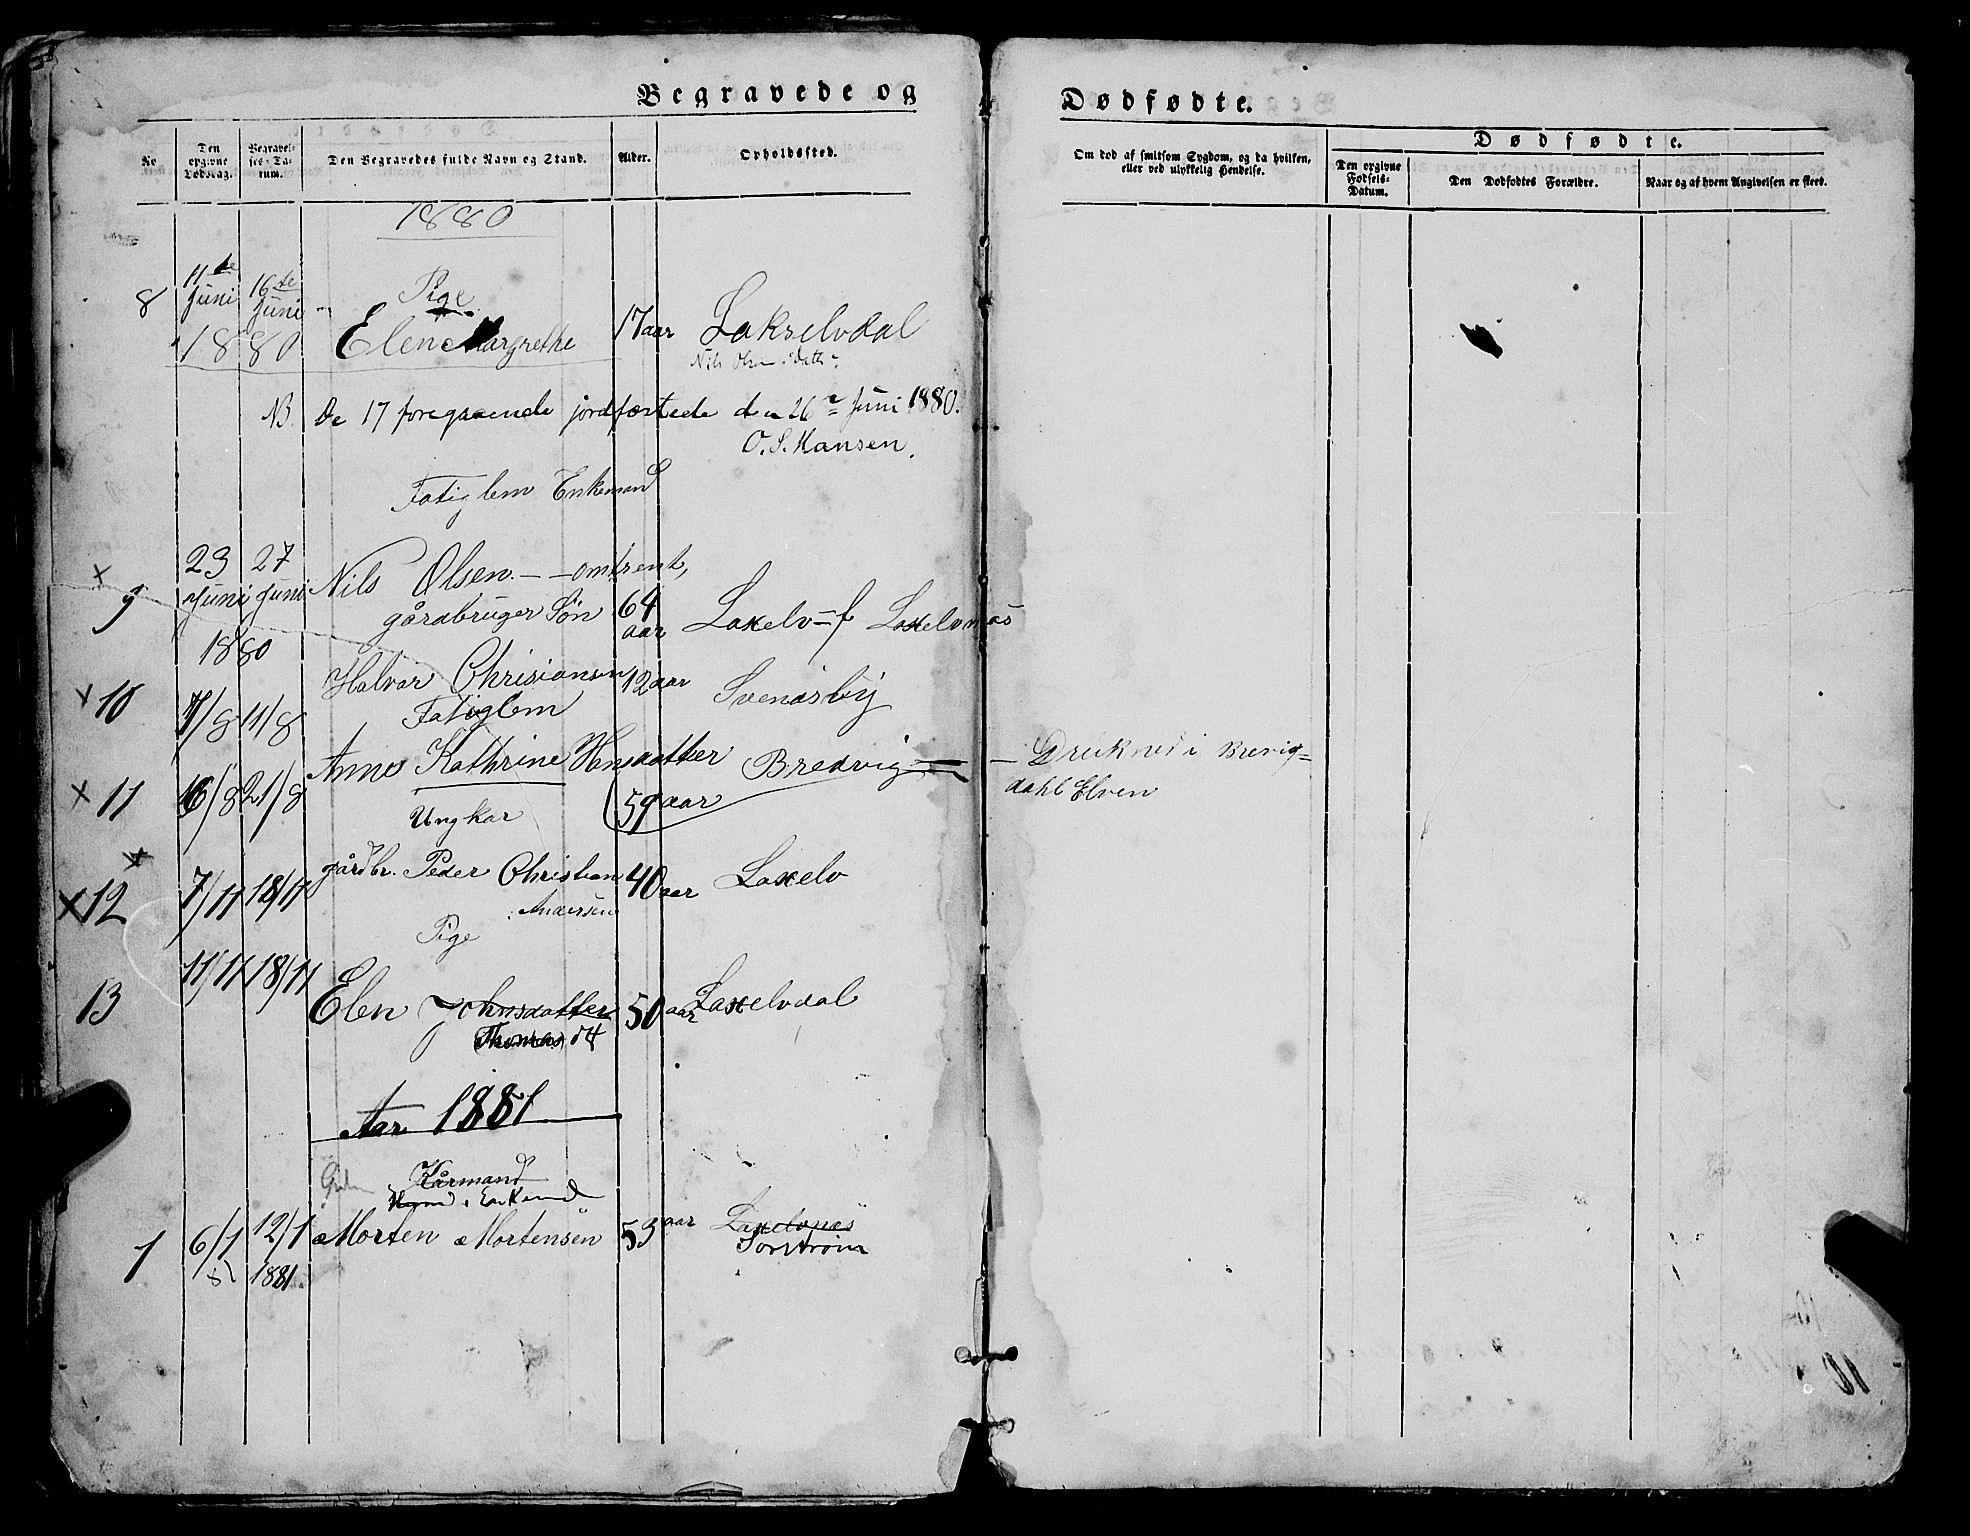 Begravede og
Dødfødte.
No
Den opgivne Dødsdag.
Begravelses-Datum.
Den Begravedes fulde Navn og Stand.
Alder.
Opholdssted.
Om død af smitsom Sygdom, og da hvilken, eller ved ulykkelig Hendelse.
Dødfødte.
Den opgivne Fødsels-Datum.
Den Dødfødtes Forældre.
Naar og af hvem Angivelsen er skeet.
1880
8 11te Juni 16te Juni 1880
Pige
Elen Margrethe 17 aar Lakselvdal
Nils Olsen
NB. De 17 foregaaende jordfæstede den 26de Juni 1880.
O. S. Hansen.
Fatiglem Enkemand
x 9 23 Juni 27 Juni 1880 Nils Olsen. — — omtrent,
64 aar Laxelv = f Laxelvnæs
gårdbruger Søn
x 10 7/8 11/8 Halvar Chrisiansen 12 aar Svendsby
Fatiglem
x 11 16/8 21/8 Anne Kathrine Hansdatter 59 aar Bredvig = — Druknet i Brevig=
dahl Elven
Ungkar
x 12 7/11 18/11 gårdbr. Peder Christian 40 aar Laxelv
Andersen
Pige
13 11/11 18/11 Elen Johnsdatter 50 aar Laxelvdal
Thomas dt
Aar 1881
Kårmand
Enkemd
1 6/1 12/1 1881. Morten Mortensen 53 aar Laxelvnæs
Sørstrøm